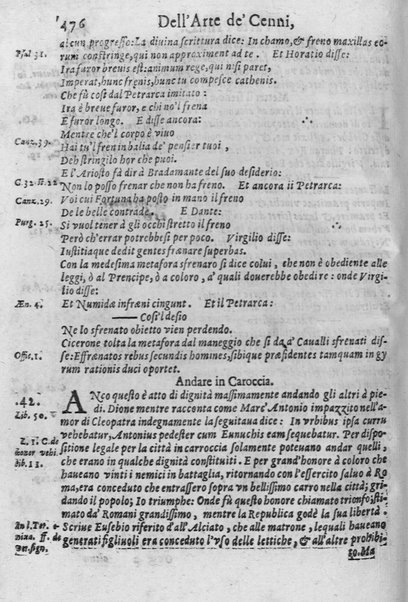 476 Dell'Arte de' Cenni,
alcun progresso: La diuina scrittura dice: In chamo, & freno maxillas eo-
Psal 31. rum constringe, qui non approximant ad te. Et Horatio disse:
Ira furor breuis est: animum rege, qui nisi paret,
Imperat, hunc frenis, hunc tu compesce cathenis.
Che fù così dal Petrarca imitato:
Ira è breue furor, e chi no'l frena
È furor longo. E disse ancora:
Mentre che'l corpo è viuo
Canz. 39. Hai tu'l fren in balia de' pensier tuoi,
Deh stringilo hor che puoi.
E l'Ariosto fà dir à Bradamante del suo desiderio:
C. 32. st. 22 Non lo posso frenar che non ha freno. Et ancora il Petrarca:
Canz. 29. Voi cui Fortuna ha posto in mano il freno
De le belle contrade. E Dante:
Purg. 25. Si vuol tener à gli occhi stretto il freno
Però ch'errar potrebbesi per poco. Virgilio disse:
Iustitiaque dedit gentes frænare superbas.
Con la medesima metafora sfrenaro si dice colui, che non è obediente alle
leggi, ò al Prencipe, ò a coloro, a' quali douerebbe obedire: onde Virgi-
lio disse:
Æn. 4. Et Numidæ infræni cingunt. Et il Petrarca:
—— Cosi'l desio
Ne lo sfrenato obietto vien perdendo.
Cicerone tolta la metafora dal maneggio che si dà a' Caualli sfrenati dis-
Offic. 1. se: Effrænatos rebus secundis homines, sibique præfidentes tamquam in gy
rum rationis duci oportet.
Andare in Caroccia.
.42. ANco questo è atto di dignità massimamente andando gli altri à pie-
Lib. 50. di. Dione mentre racconta come Marc'Antonio impazzito nell'a-
mor di Cleopatra indegnamente la seguitaua dice: In vrbibus ipsa curru
L. 1. C. de vehebatur, Antonius pedester cum Eunuchis eam sequebatur. Per dispo-
honor vehi. sitione legale per la città in caroccia solamente poteuano andar quelli,
lib. 11. che erano in qualche dignità constituiti. E per grand'honore à coloro che
haueano vinti i nemici in battaglia, ritornando con l'essercito saluo à Ro
ma, era conceduto che entrassero sopra vn bellissimo carro nella città, gri
dando il popolo; Io triumphe: Onde fù questo honore chiamato trionfo, sti
mato da' Romani grandissimo, mentre la Republica godè la sua libertà.
Scriue Eusebio riferito d'all'Alciato, che alle matrone, lequali haueano
generati figliuoli era conceduto l'vso delle lettiche, & all'altre prohibi
to. Ma